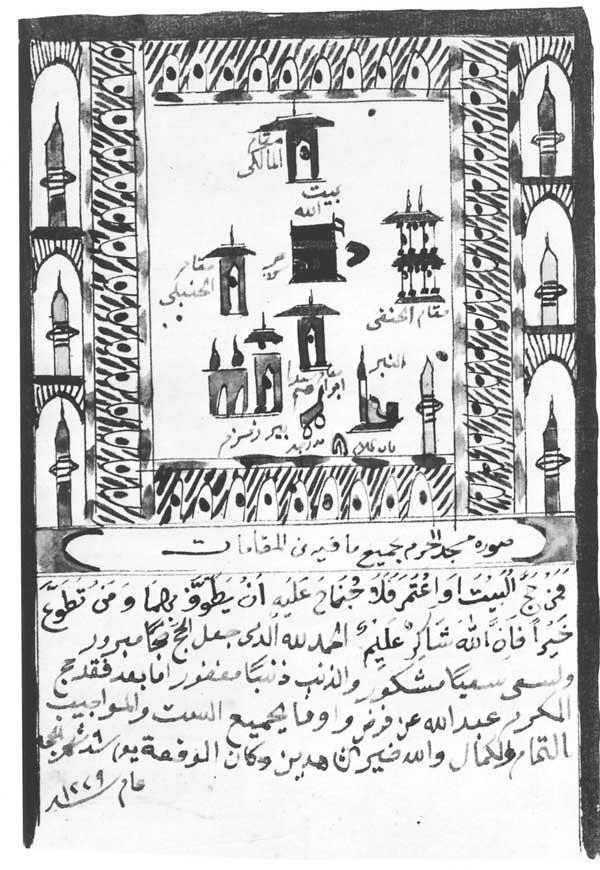 مقام المالكي
بيت الله
مقام الحنبلي
حجر
مقام الحنفي
المنبر
مقام سيدنا ابراهيم
بير زمزم
صورة مسجد الحرم بجميع ما فيه من المقامات
فمن حج البيت او اعتمر فلا جناح عليه ان يطوف بهما ومن تطوع
خيرا فان الله شاكر عليم الحمد لله الذي جعل الحج حجا مبرور
ولسعى سعيا مشكور والذنب ذنبا مغفور اما بعد فقد حج
المكرم عبد الله عن فرض واوفا بجميع السنت والمواجيب
بالتمام والكمال والله خير وكان الوقفة يوم شهر
عام ١٢٧٩ سنه